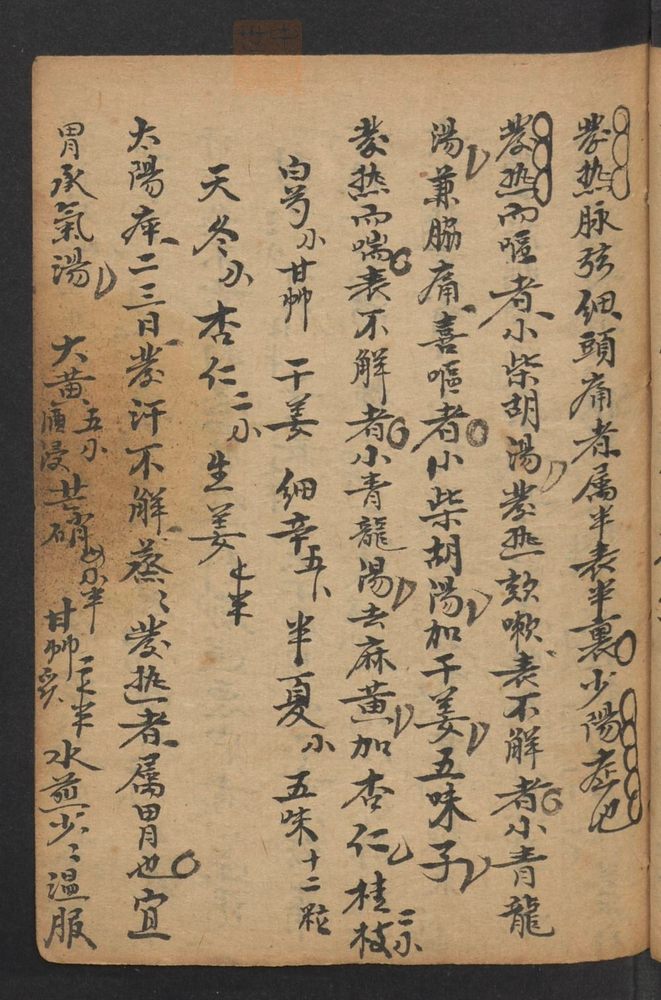 發热脉弦细頭痛者属半表半裏少陽症也
發热而嘔者小柴胡湯發热欬嗽表不解者小青龍
湯兼脇痛喜嘔者小柴胡湯加干姜五味子
發热而喘表不解者小青龍湯去麻黄加杏仁桂枝二小
白芍小甘艸 干姜 细辛五小半夏小五味十二粒
天冬小杏仁二小生姜半
太陽症二三日發汗不解蒸〻發热者属胃也宜
胃承氣湯 大黄五小酒浸芒硝小半甘艸炙半水煎少〻温服